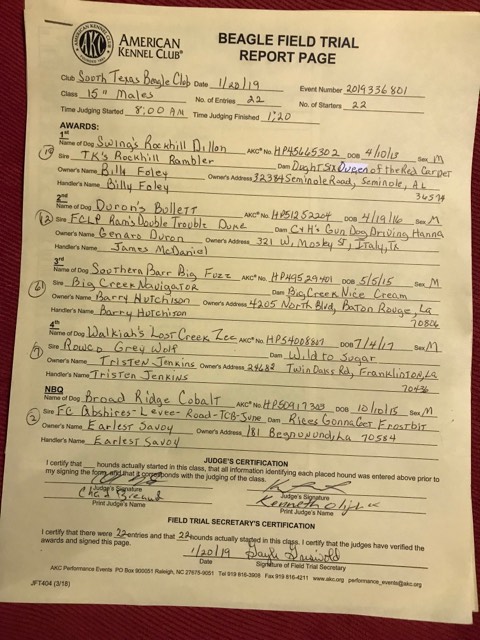 AMERICAN KENNEL CLUB
AKC
AMERICAN
KENNEL CLUB®
BEAGLE FIELD TRIAL
REPORT PAGE
Club South Texas Beagle Club Date 1/20/19 Event Number 2019336801
Class 15" Males No. of Entries 22 No. of Starters 22
Time Judging Started 8:00 AM Time Judging Finished 1:20
AWARDS:
1st
Name of Dog Swing's Rockhill Dillon AKC® No. HP45665302 DOB 4/10/13 Sex M
Sire TK's Rockhill Rambler Dam Dught Six Queen of the Red Carpet
Owner's Name Billy Foley Owner's Address 32384 Seminole Road, Seminole, AL
Handler's Name Billy Foley 36574
2nd
Name of Dog Duron's Bullett AKC® No. HP51252204 DOB 4/19/16 Sex M
Sire FCLP Ram's Double Trouble Duke Dam C&H's Gun Dog Driving Hanna
Owner's Name Genaro Duron Owner's Address 321 W. Mosky St, Italy, Tx
Handler's Name James McDaniel
3rd
Name of Dog Southern Barr Big Fuzz AKC® No. HP49529401 DOB 5/5/15 Sex M
Sire Big Creek Navigator Dam Big Creek Nice Cream
Owner's Name Barry Hutchison Owner's Address 4205 North Blvd, Baton Rouge, La
Handler's Name Barry Hutchison 70806
4th
Name of Dog Walkiah's Lost Creek Zee AKC® No. HP54008807 DOB 7/4/17 Sex M
Sire Rowco Grey Wolf Dam Wild to Sugar
Owner's Name Tristen Jenkins Owner's Address 24682 Twin Oaks Rd, Franklinton, La
Handler's Name Tristen Jenkins 70436
NBQ
Name of Dog Broad Ridge Cobalt AKC® No. HP50917303 DOB 10/10/15 Sex M
Sire FC Abshires-Levee-Road-TCB-June Dam Rices Gonna Get Frostbit
Owner's Name Earlest Savoy Owner's Address 181 La 70584
Handler's Name Earlest Savoy
JUDGE'S CERTIFICATION
I certify that hounds actually started in this class, that all information identifying each placed hound was entered above prior to
my signing the form and that it corresponds with the judging of the class.
Judge's Signature Judge's Signature
Chad Breaud Kenneth
Print Judge's Name Print Judge's Name
FIELD TRIAL SECRETARY'S CERTIFICATION
I certify that there were 22 entries and that 22 hounds actually started in this class. I certify that the judges have verified the
awards and signed this page.
1/20/19 Gayle Griswold
Date Signature of Field Trial Secretary
AKC Performance Events PO Box 900051 Raleigh, NC 27675-9051 Tel 919 816-3908 Fax 919 816-4211 www.akc.org performance_events@akc.org
JFT404 (3/18)